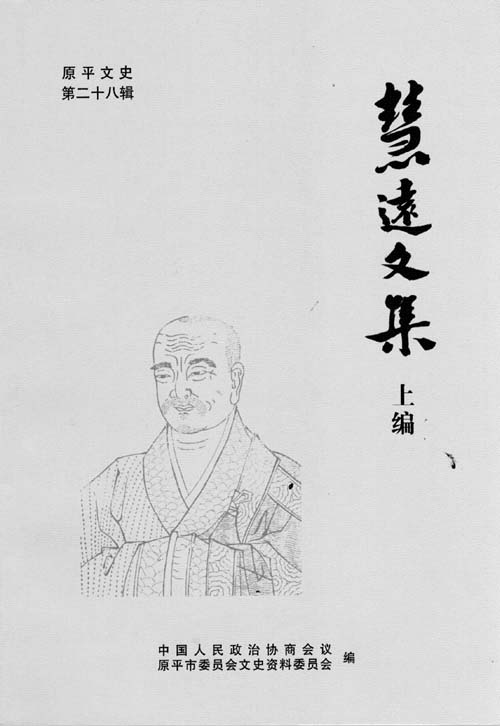 原平文史
第二十八辑
慧遠文集
上编
中国人民政治协商会议
原平市委员会文史资料委员会 编